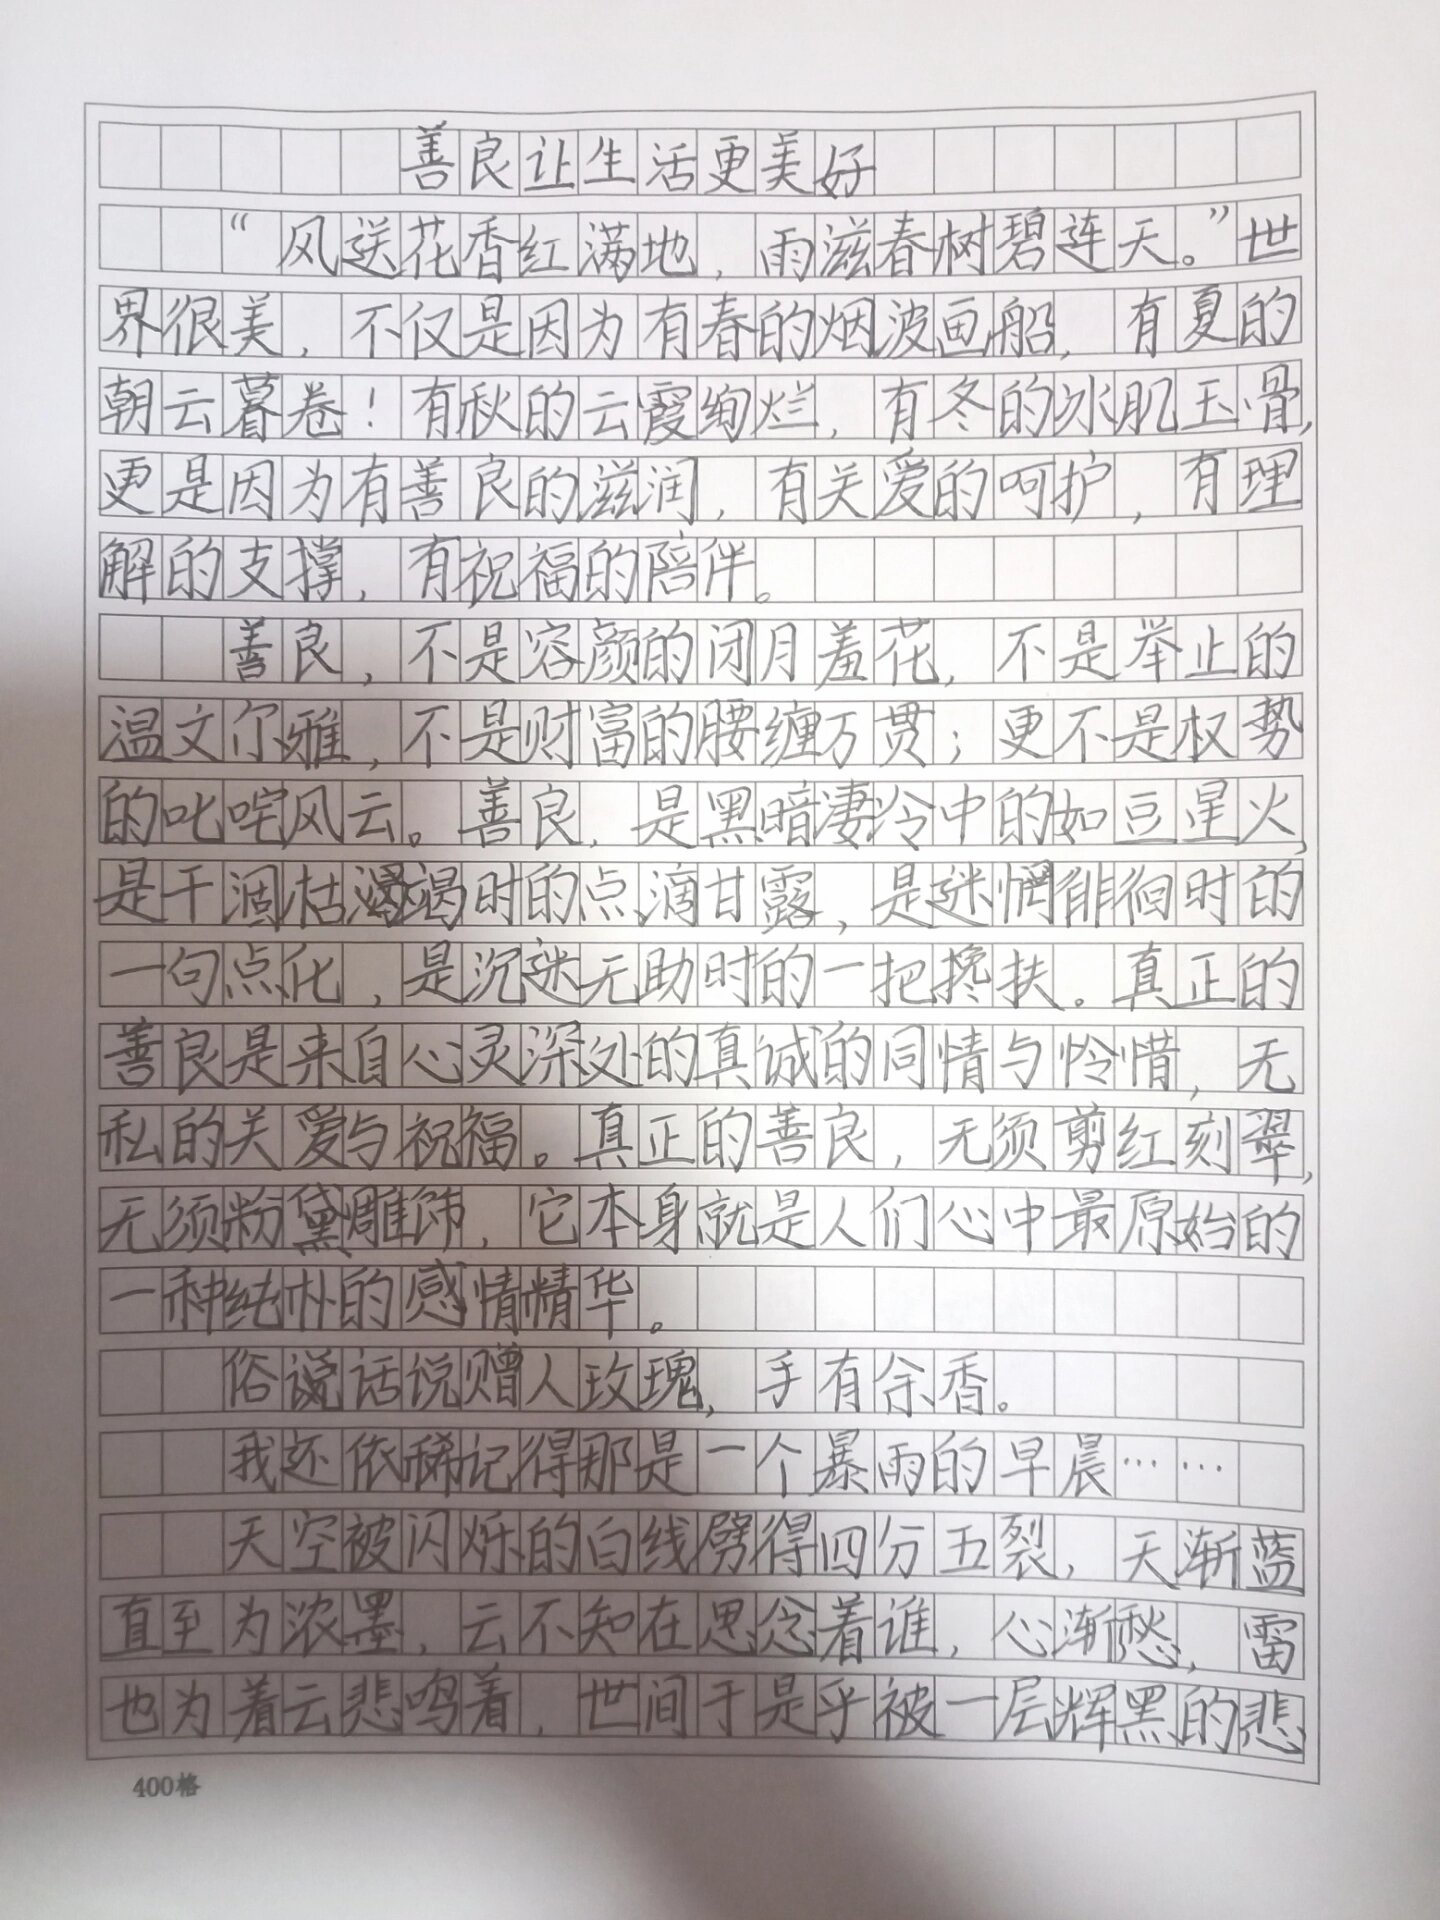 善良让生活更美好
“风送花香红满地，雨滋春树碧连天。”世
界很美，不仅是因为有春的烟波画船，有夏的
朝云暮卷！有秋的云霞绚烂，有冬的冰肌玉骨，
更是因为有善良的滋润，有关爱的呵护，有理
解的支撑，有祝福的陪伴。
善良，不是容颜的闭月羞花，不是举止的
温文尔雅，不是财富的腰缠万贯；更不是权势
的叱咤风云。善良，是黑暗凄冷中的如豆星火，
是干涸枯竭时的点滴甘露，是迷惘徘徊时的
一句点化，是沉迷无助时的一把搀扶。真正的
善良是来自心灵深处的真诚的同情与怜惜，无
私的关爱与祝福。真正的善良，无须剪红刻翠，
无须粉黛雕饰，它本身就是人们心中最原始的
一种纯朴的感情精华。
俗说话说赠人玫瑰，手有余香。
我还依稀记得那是一个暴雨的早晨……
天空被闪烁的白线劈得四分五裂，天渐蓝
直至为浓墨，云不知在思念着谁，心渐愁，雷
也为着云悲鸣着，世间于是乎被一层辉黑的悲
400格